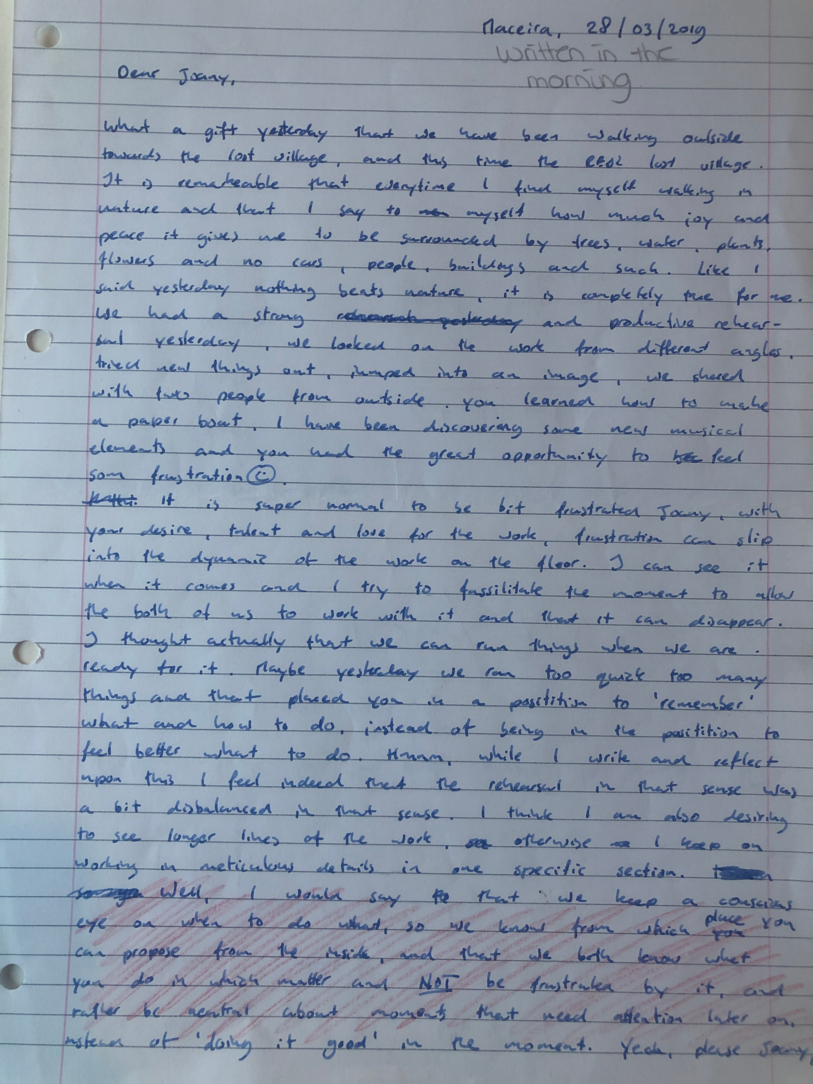 Maceira, 28/03/2019
written in the
morning
Dear Joany,
What a gift yesterday that we have been walking outside
towards the lost village, and this time the REAL lost village.
It is remarkeable that everytime I find myself walking in
nature and that I say to myself how much joy and
peace it gives me to be surrounded by trees, water, plants,
flowers and no cars, people, buildings and such. Like I
said yesterday nothing beats nature, it is completely true for me.
We had a strong rehearsal yesterday and productive rehear-
sal yesterday, we looked on the work from different angles,
tried new things out, jumped into an image, we shared
with two people from outside, you learned how to make
a paper boat, I have been discovering some new musical
elements and you had the great opportunity to feel
som frustration ☺.
It is super normal to be bit frustrated Joany, with
your desire, talent and love for the work, frustration can slip
into the dynamic of the work on the floor. I can see it
when it comes and I try to fassilitate the moment to allow
the both of us to work with it and that it can disappear.
I thought actually that we can run things when we are
ready for it. Maybe yesterday we ran too quick too many
things and that placed you in a postition to 'remember'
what and how to do, instead of being in the postition to
feel better what to do. Hmmm, while I write and reflect
upon this I feel indeed that the rehearsal in that sense was
a bit disbalanced in that sense. I think I am also desiring
to see longer lines of the work, otherwise I keep on
working in meticulous details in one specific section.
Well, I would say that we keep a conscious
eye on when to do what, so we know from which place you
can propose from the inside, and that we both know what
you do in which matter and NOT be frustrated by it, and
rather be neutral about moments that need attention later on,
instead of 'doing it good' in the moment. Yeah, please Joany,